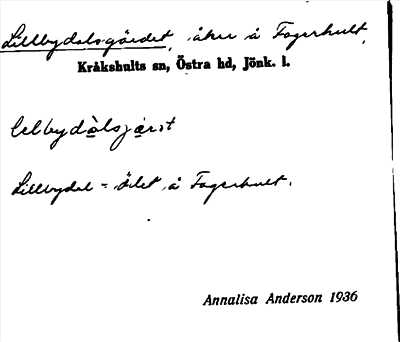 Lillbydalsgärdet, åker å Fagerhult,
Kråkshults sn, Östra hd, Jönk. l.
lelbydàlsjæ̀rst
Lillbydal = ödet å Fagerhult.
Annalisa Anderson 1936